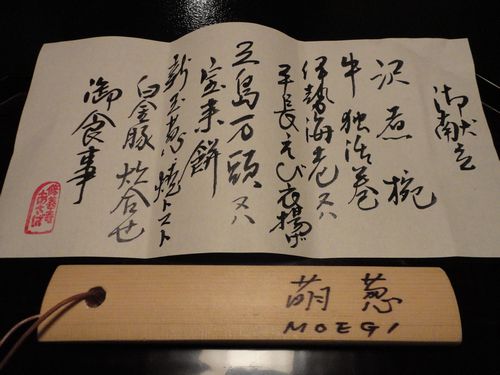 御献立
沢煮椀
牛独活巻
伊勢海老又ハ
平長えそび衣揚げ
五島万頭又ハ
宝来餅
新玉葱焼トマト
白金豚炊合せ
御食事
萌葱
MOEGI